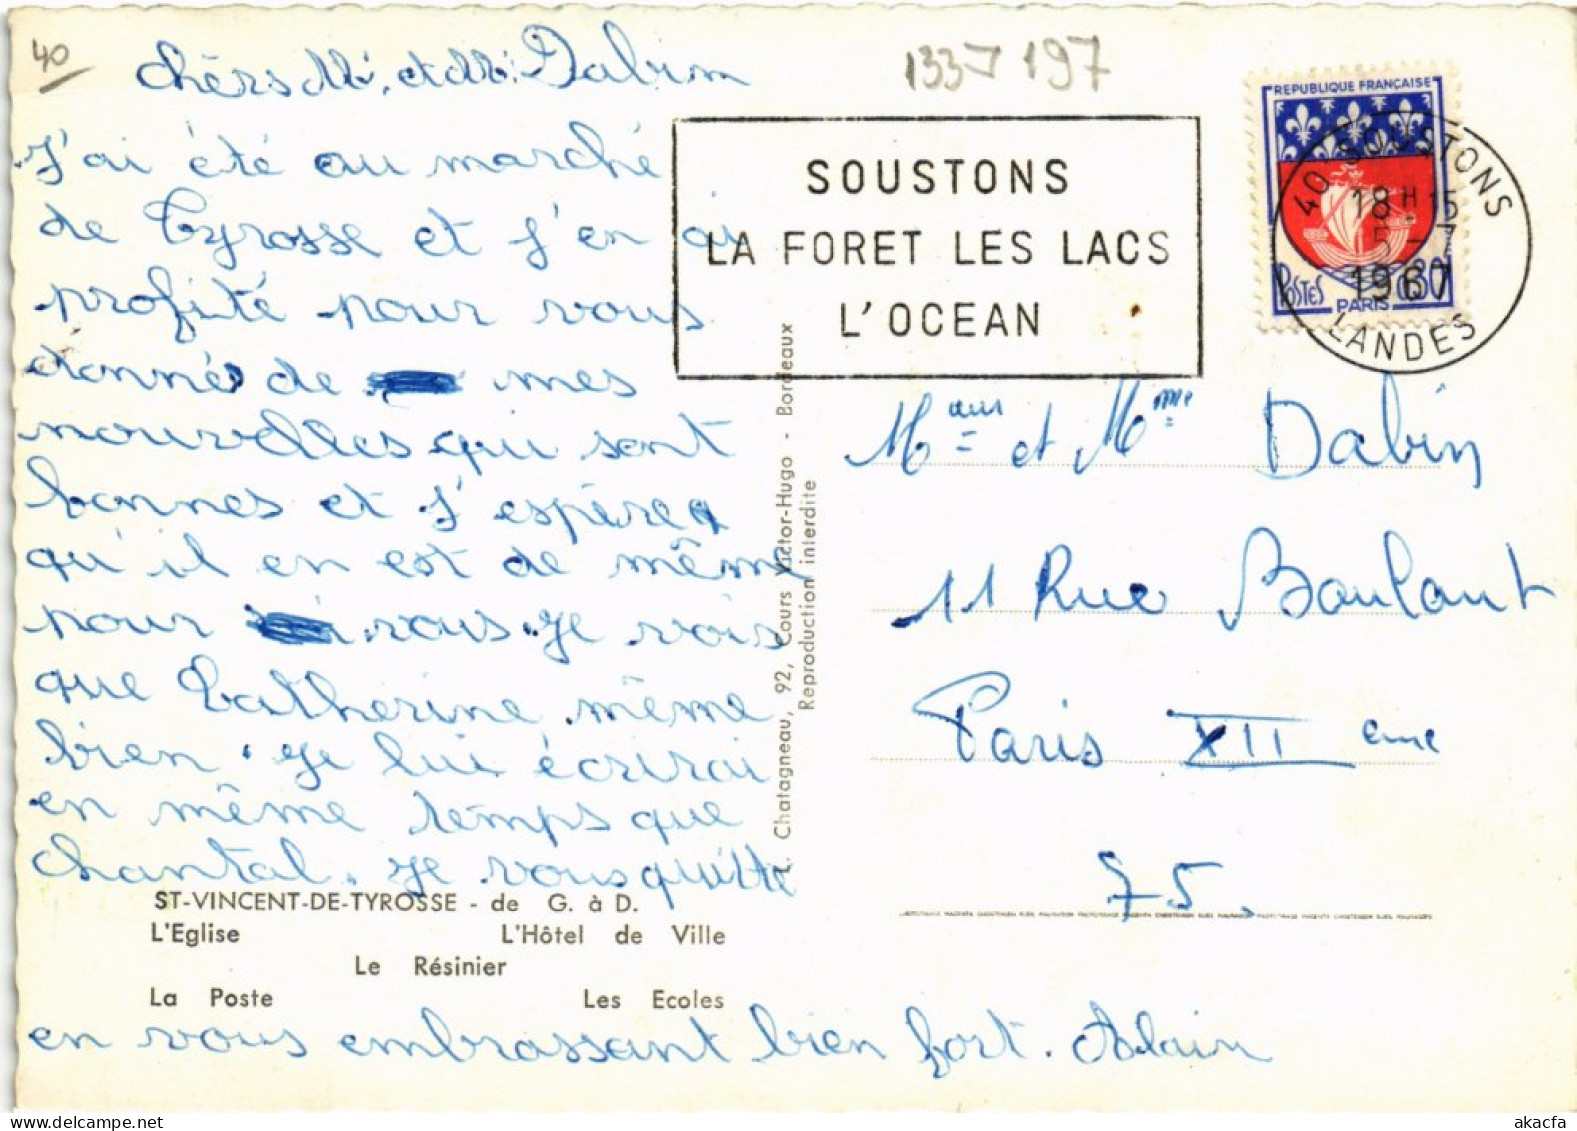 40
1337 197
chèrs Mr. et Mr. Dabin
J'ai été au marché
de Tyrosse et j'en ai
profité pour vous
donné de mes
nouvelles qui sont
bonnes et j'espère
qu'il en est de même
pour vous. Je vois
que Catherine même
bien. Je lui écrirai
en même temps que
chantal. Je vous quitte
ST-VINCENT-DE-TYROSSE - de G. à D.
L'Eglise L'Hôtel de Ville
Le Résinier
La Poste Les Ecoles
en vous embrassant bien fort. Alain
L. Chatagneau, 92, Cours Victor-Hugo - Bordeaux
Reproduction interdite
SOUSTONS
LA FORET LES LACS
L'OCEAN
REPUBLIQUE FRANÇAISE
POSTES 0,30
PARIS
40 SOUSTONS
18 H 15
5 - 7
1967
LANDES
Meur et Mme Dabin
11 Rue Boulant
Paris XII eme
75.
akacfa